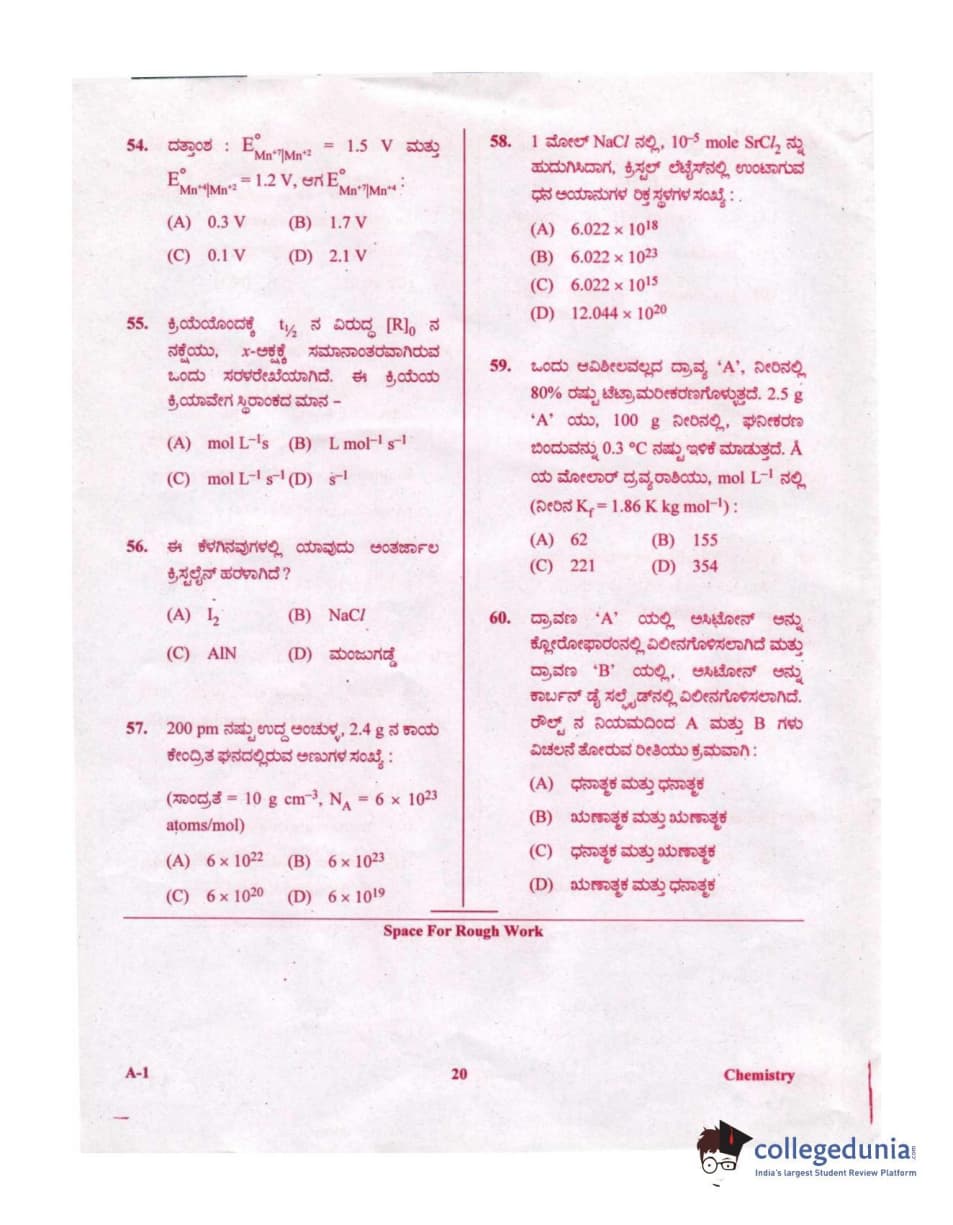 54. ದತ್ತಾಂಶ : E°Mn⁺⁷|Mn⁺² = 1.5 V ಮತ್ತು
E°Mn⁺⁴|Mn⁺² = 1.2 V, ಆಗ E°Mn⁺⁷|Mn⁺⁴ :
(A) 0.3 V (B) 1.7 V
(C) 0.1 V (D) 2.1 V
55. ಕ್ರಿಯೆಯೊಂದಕ್ಕೆ t½ ನ ವಿರುದ್ಧ [R]₀ ನ
ನಕ್ಷೆಯು, x-ಅಕ್ಷಕ್ಕೆ ಸಮಾನಾಂತರವಾಗಿರುವ
ಒಂದು ಸರಳರೇಖೆಯಾಗಿದೆ. ಈ ಕ್ರಿಯೆಯ
ಕ್ರಿಯಾವೇಗ ಸ್ಥಿರಾಂಕದ ಮಾನ –
(A) mol L⁻¹s (B) L mol⁻¹ s⁻¹
(C) mol L⁻¹ s⁻¹ (D) s⁻¹
56. ಈ ಕೆಳಗಿನವುಗಳಲ್ಲಿ ಯಾವುದು ಅಂತರ್ಜಾಲ
ಕ್ರಿಸ್ಟಲೈನ್ ಹರಳಾಗಿದೆ ?
(A) I₂ (B) NaCl
(C) AlN (D) ಮಂಜುಗಡ್ಡೆ
57. 200 pm ನಷ್ಟು ಉದ್ದ ಅಂಚುಳ್ಳ, 2.4 g ನ ಕಾಯ
ಕೇಂದ್ರಿತ ಘನದಲ್ಲಿರುವ ಅಣುಗಳ ಸಂಖ್ಯೆ :
(ಸಾಂದ್ರತೆ = 10 g cm⁻³, N_A = 6 × 10²³
atoms/mol)
(A) 6 × 10²² (B) 6 × 10²³
(C) 6 × 10²⁰ (D) 6 × 10¹⁹
58. 1 ಮೋಲ್ NaCl ನಲ್ಲಿ, 10⁻⁵ mole SrCl₂ ನ್ನು
ಹುದುಗಿಸಿದಾಗ, ಕ್ರಿಸ್ಟಲ್ ಲೆಟ್ಟೈಸ್‌ನಲ್ಲಿ ಉಂಟಾಗುವ
ಧನ ಅಯಾನುಗಳ ರಿಕ್ತ ಸ್ಥಳಗಳ ಸಂಖ್ಯೆ :
(A) 6.022 × 10¹⁸
(B) 6.022 × 10²³
(C) 6.022 × 10¹⁵
(D) 12.044 × 10²⁰
59. ಒಂದು ಆವಿಶೀಲವಲ್ಲದ ದ್ರಾವ್ಯ ‘A’, ನೀರಿನಲ್ಲಿ
80% ರಷ್ಟು ಟೆಟ್ರಾಮರೀಕರಣಗೊಳ್ಳುತ್ತದೆ. 2.5 g
‘A’ ಯು, 100 g ನೀರಿನಲ್ಲಿ, ಘನೀಕರಣ
ಬಿಂದುವನ್ನು 0.3 °C ನಷ್ಟು ಇಳಿಕೆ ಮಾಡುತ್ತದೆ. A
ಯ ಮೋಲಾರ್ ದ್ರವ್ಯರಾಶಿಯು, mol L⁻¹ ನಲ್ಲಿ
(ನೀರಿನ K_f = 1.86 K kg mol⁻¹) :
(A) 62 (B) 155
(C) 221 (D) 354
60. ದ್ರಾವಣ ‘A’ ಯಲ್ಲಿ ಅಸಿಟೋನ್ ಅನ್ನು
ಕ್ಲೋರೋಫಾರಂನಲ್ಲಿ ವಿಲೀನಗೊಳಿಸಲಾಗಿದೆ ಮತ್ತು
ದ್ರಾವಣ ‘B’ ಯಲ್ಲಿ, ಅಸಿಟೋನ್ ಅನ್ನು
ಕಾರ್ಬನ್ ಡೈ ಸಲ್ಫೈಡ್‌ನಲ್ಲಿ ವಿಲೀನಗೊಳಿಸಲಾಗಿದೆ.
ರೌಲ್ಟ್ ನ ನಿಯಮದಿಂದ A ಮತ್ತು B ಗಳು
ವಿಚಲನೆ ತೋರುವ ರೀತಿಯು ಕ್ರಮವಾಗಿ :
(A) ಧನಾತ್ಮಕ ಮತ್ತು ಧನಾತ್ಮಕ
(B) ಋಣಾತ್ಮಕ ಮತ್ತು ಋಣಾತ್ಮಕ
(C) ಧನಾತ್ಮಕ ಮತ್ತು ಋಣಾತ್ಮಕ
(D) ಋಣಾತ್ಮಕ ಮತ್ತು ಧನಾತ್ಮಕ
Space For Rough Work
A-1 20 Chemistry
collegedunia.com
India's largest Student Review Platform